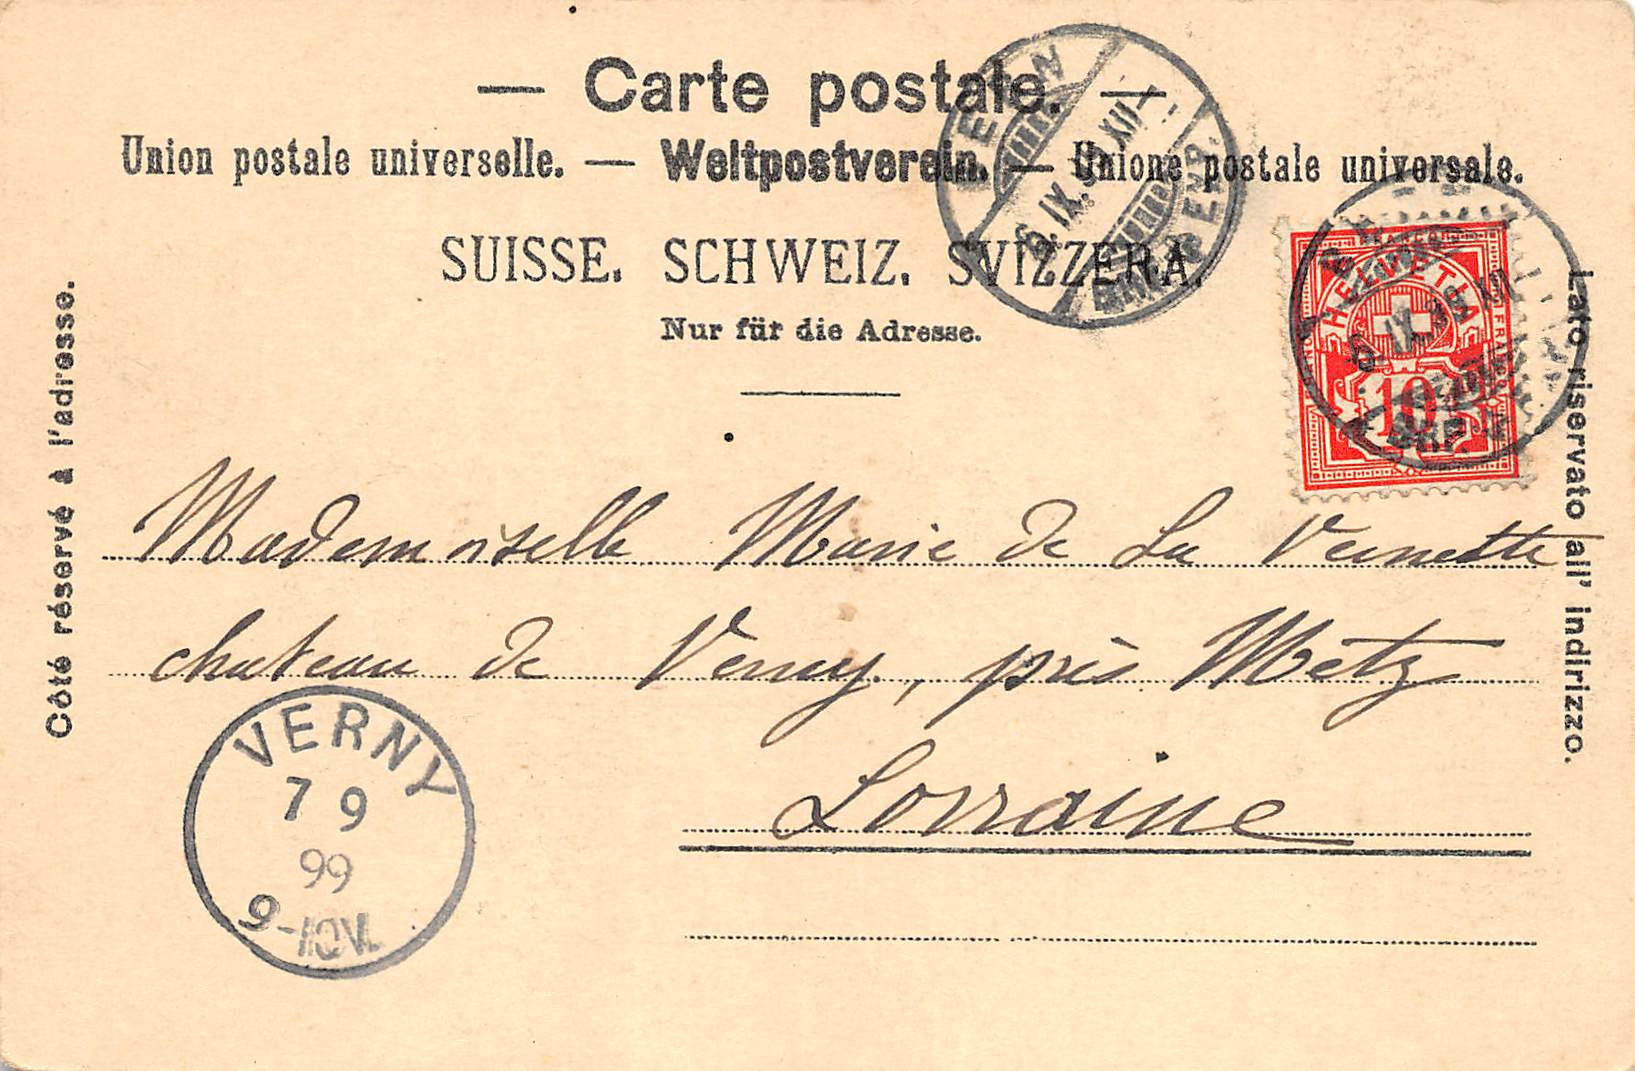 — Carte postale. —
Union postale universelle. — Weltpostverein. — Unione postale universale.
SUISSE. SCHWEIZ. SVIZZERA.
Nur für die Adresse.
Côté réservé à l'adresse.
Lato riservato all' indirizzo.
BERN
6. IX. 99. XII
HELVETIA
FRANCO
10
6. IX. 99 XII
Mademoiselle Marie de La Vernette
chateau de Verny, près Metz
Lorraine
VERNY
7 9
99
9-10V.